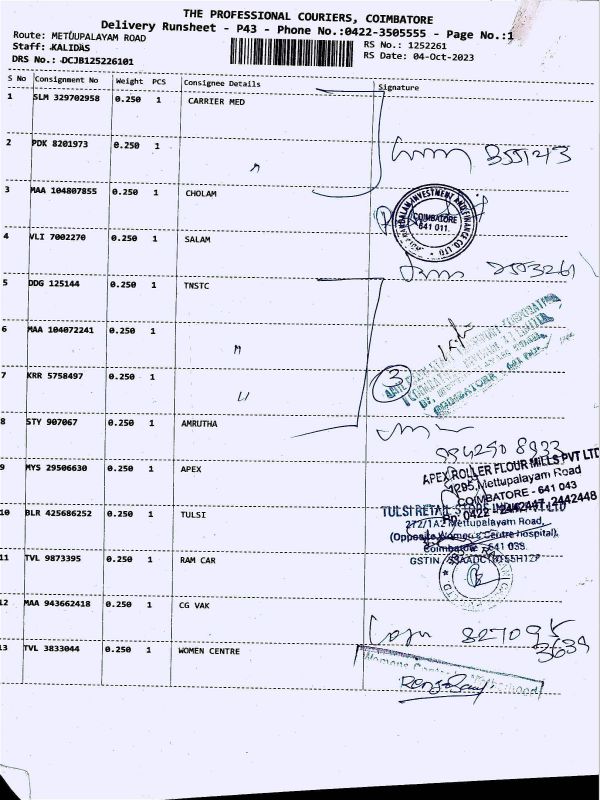 THE PROFESSIONAL COURIERS, COIMBATORE
Delivery Runsheet - P43 - Phone No.:0422-3505555 - Page No.:1
Route: METUUPALAYAM ROAD
Staff: KALIDAS
RS No.: 1252261
DRS No.: DCJB125226101
RS Date: 04-Oct-2023
S No Consignment No Weight PCS Consignee Details Signature
1 SLM 329702958 0.250 1 CARRIER MED
2 PDK 8201973 0.250 1 "
355143
3 MAA 104807855 0.250 1 CHOLAM
INVESTMENT AND FINANCE CO. LTD
COIMBATORE
641 011.
4 VLI 7002270 0.250 1 SALAM
2553261
5 DDG 125144 0.250 1 TNSTC
6 MAA 104072241 0.250 1 "
7 KRR 5758497 0.250 1 "
3
8 STY 907067 0.250 1 AMRUTHA
9 MYS 29506630 0.250 1 APEX
APEX ROLLER FLOUR MILLS PVT LTD
Mettupalayam Road
COIMBATORE - 641 043
0422 - 2442447, 2442448
10 BLR 425686252 0.250 1 TULSI
TULSI RETAIL
272/1A2 Mettupalayam Road,
(Opposite Women's Centre hospital),
Coimbatore - 641 038.
GSTIN
11 TVL 9873395 0.250 1 RAM CAR
12 MAA 943662418 0.250 1 CG VAK
827095
3639
13 TVL 3833044 0.250 1 WOMEN CENTRE
Womens Center